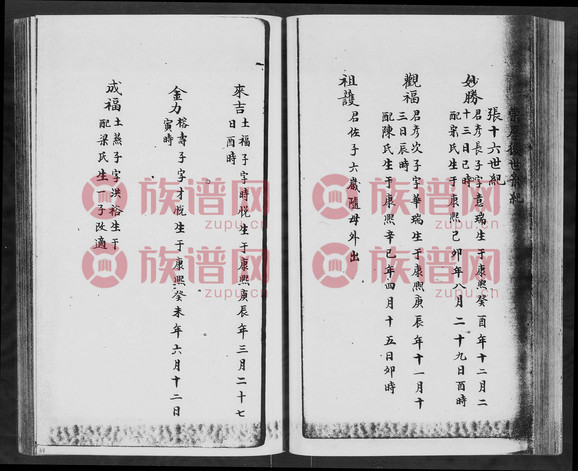 張十六世紀
妙勝 君彥長子字意瑞生于康熙癸酉年十二月二
十三日巳時
配宋氏生于康熙己卯年八月二十九日酉時
觀福 君彥次子字華瑞生于康熙庚辰年十一月十
三日辰時
配陳氏生于康熙辛巳年四月十五日卯時
祖護 君佐子六歲隨母外出
來吉 土福子字時悅生于康熙庚辰年三月二十七
日酉時
金力 榕壽子字才悅生于康熙癸未年六月十二日
寅時
成福 土燕子字洪裕生于
配梁氏生一子改適
族谱网
zupu.cn
族谱网
zupu.cn
族谱网
zupu.cn
族谱网
zupu.cn